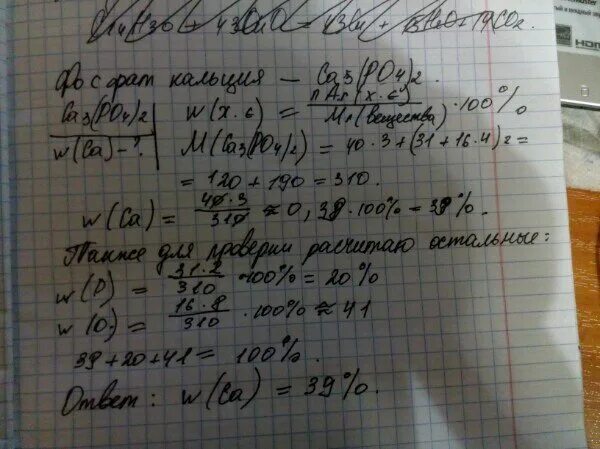 Фосфат кальция – Ca3(PO4)2.
Ca3(PO4)2
w(Ca) – ?
w(х.э) = nAr(х.э) / Mr(вещества) · 100%
M(Ca3(PO4)2) = 40·3+(31+16·4)2 =
= 120 + 190 = 310.
w(Ca) = 40·3 / 310 ≈ 0,39·100% = 39%.
Также для проверки расчитаю остальные:
w(P) = 31·2 / 310 · 100% = 20%
w(O) = 16·8 / 310 · 100% ≈ 41
39+20+41 = 100%.
Ответ: w(Ca) = 39%.